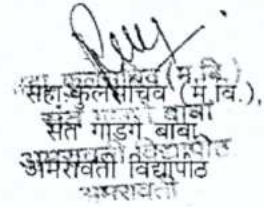 सहा.कुलसचिव (म.वि.),
संत गाडगे बाबा
अमरावती विद्यापीठ
अमरावती